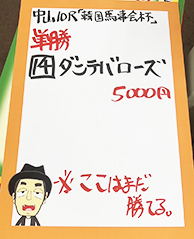 中山10R「韓国馬事会杯」
単勝
④ダンテバローズ
5000円
※ここはまだ
勝てる。